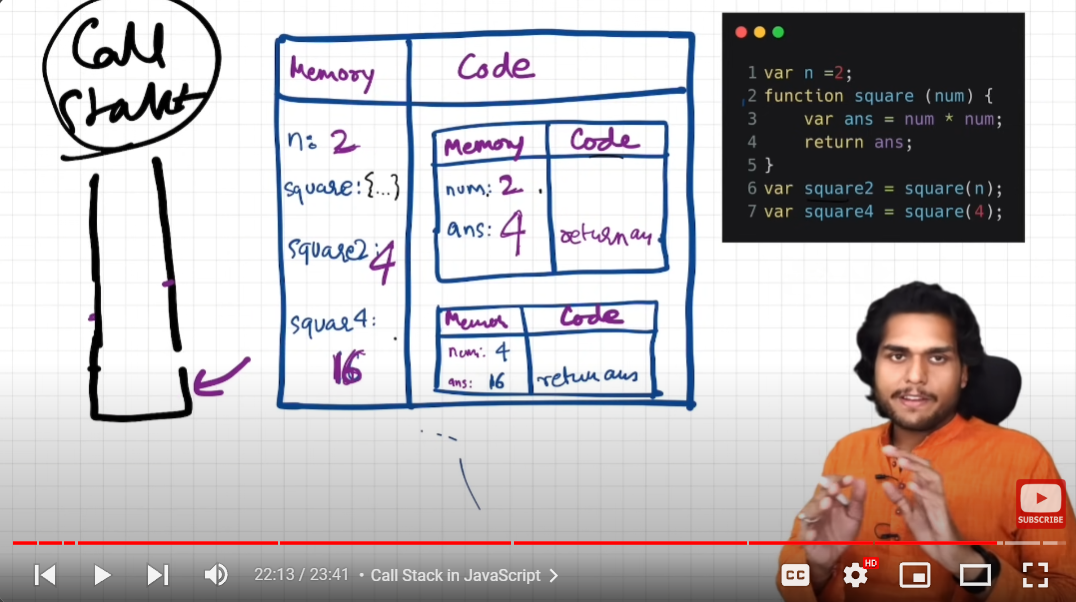 Call
Stack
Memory
Code
n: 2
square: {...}
square2: 4
squar4:
16
Memory
Code
num: 2
ans: 4
return an
Code
num: 4
ans: 16
return ans
1 var n =2;
2 function square (num) {
3 var ans = num * num;
4 return ans;
5 }
6 var square2 = square(n);
7 var square4 = square(4);
SUBSCRIBE
22:13 / 23:41 • Call Stack in JavaScript
CC
HD